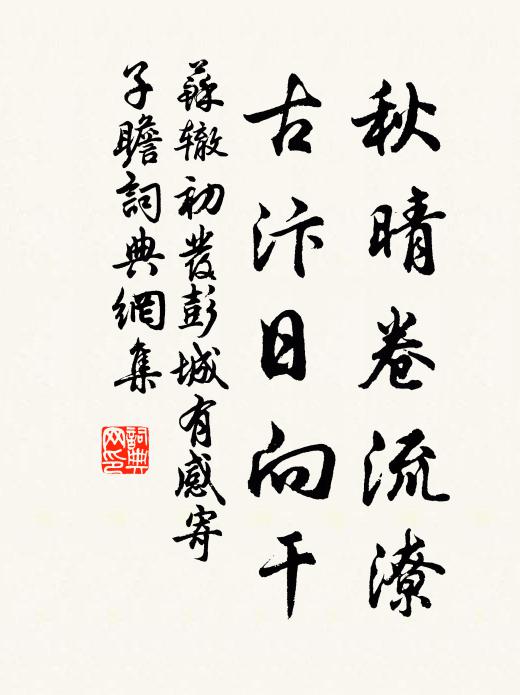 秋晴卷流潦
古汴日向干
蘇辙初發彭城有感寄
子瞻詞典網集
詞典
网印